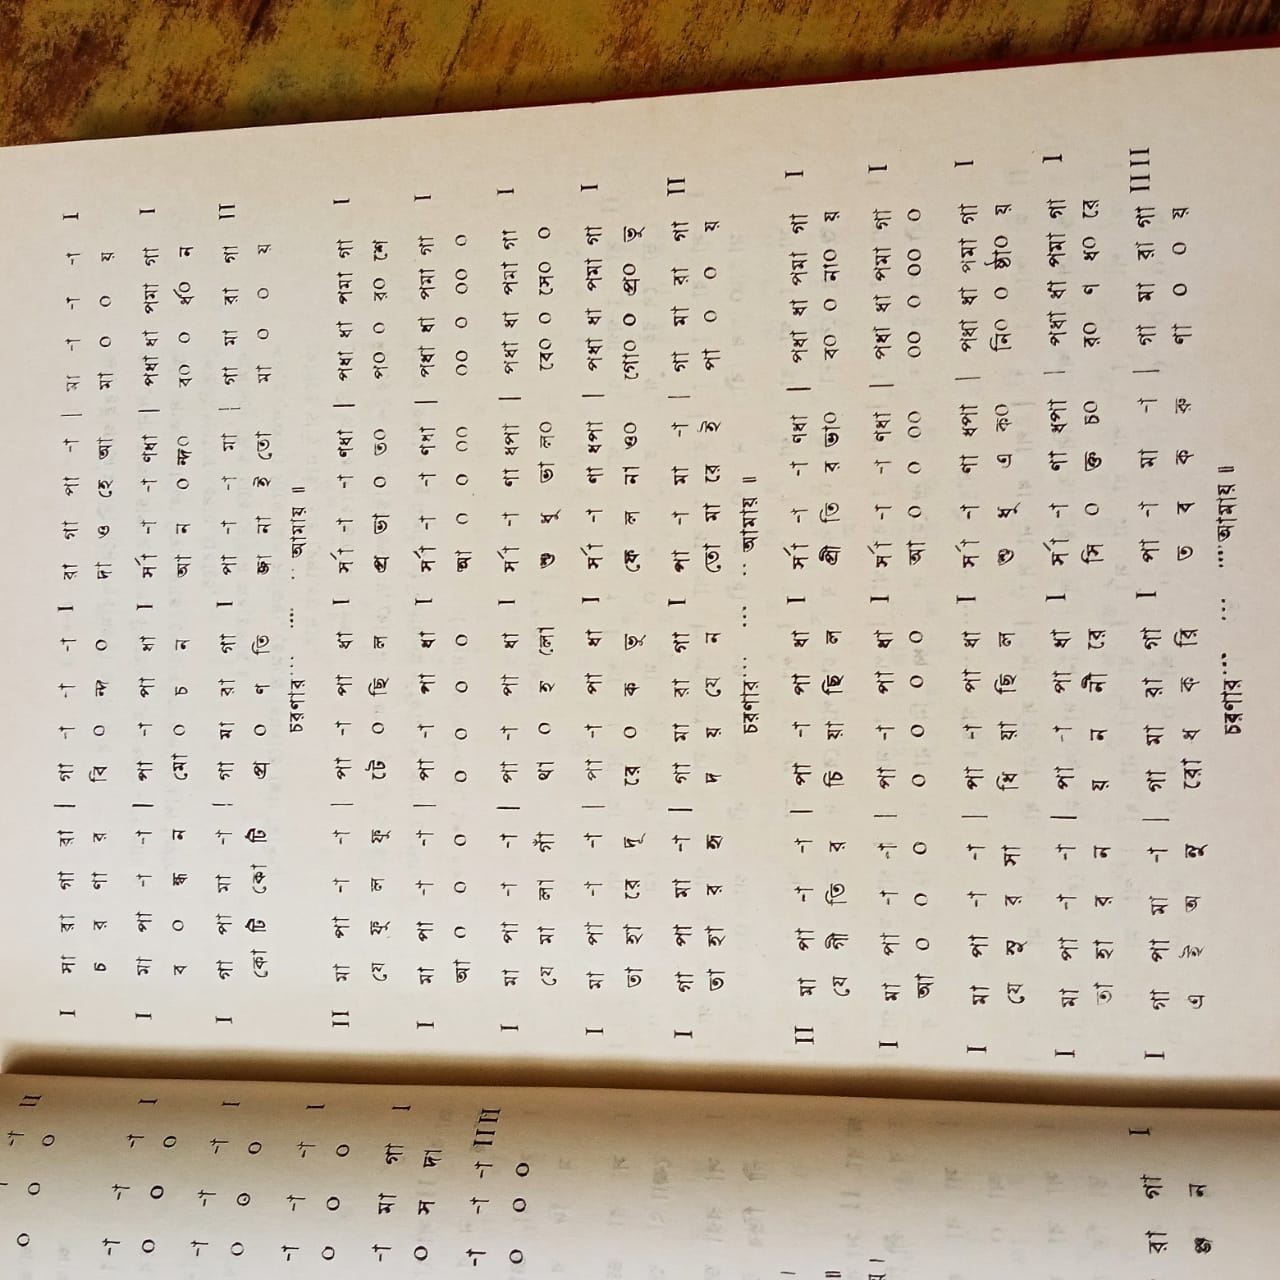 I সা রা গা রা | গা -া -া -া I রা গা পা -া | মা -া -া -া I
চ র ণা র বি ০ ন্দ ০ দা ও হে আ মা ০ ০ য়
I মা পা -া -া | পা -া পা ধা I র্সা -া -া ণধা | পধা ধা পমা গা I
ব ০ ন্ধ ন মো ০ চ ন আ ন ০ ন্দ০ ব০ ০ র্ধ০ ন
I গা পা মা -া | গা মা রা গা I পা -া -া মা | গা মা রা গা II
কো টি কো টি প্র ০ ণ তি জা না ই তো মা ০ ০ য়
চরণার... .... ..আমায় ॥
II মা পা -া -া | পা -া পা ধা I র্সা -া -া ণধা | পধা ধা পমা গা I
যে ফু ল ফু টে ০ ছি ল প্র ভা ০ ত০ প০ ০ র০ শে
I মা পা -া -া | পা -া পা ধা I র্সা -া -া ণধা | পধা ধা পমা গা I
আ ০ ০ ০ ০ ০ ০ ০ আ ০ ০ ০০ ০০ ০ ০০ ০
I মা পা -া -া | পা -া পা ধা I র্সা -া ণা ধপা | পধা ধা পমা গা I
যে মা লা গাঁ থা ০ হ লো শু ধু ভা ল০ বে০ ০ সে০ ০
I মা পা -া -া | পা -া পা ধা I র্সা -া ণা ধপা | পধা ধা পমা গা I
তা হা রে দূ রে ০ ক ভু ফে ল না ও০ গো০ ০ প্র০ ভু
I গা পা মা -া | গা মা রা গা I পা -া মা -া | গা মা রা গা II
তা হা র হৃ দ য় যে ন তো মা রে ই পা ০ ০ য়
চরণার... ... ..আমায় ॥
II মা পা -া -া | পা -া পা ধা I র্সা -া -া ণধা | পধা ধা পমা গা I
যে গী তি র চি য়া ছি ল প্রী তি র ভা০ ব০ ০ না০ য়
I মা পা -া -া | পা -া পা ধা I র্সা -া -া ণধা | পধা ধা পমা গা I
আ ০ ০ ০ ০ ০ ০ ০ আ ০ ০ ০০ ০০ ০ ০০ ০
I মা পা -া -া | পা -া পা ধা I র্সা -া ণা ধপা | পধা ধা পমা গা I
যে সু র সা ধি য়া ছি ল শু ধু এ ক০ নি০ ০ ষ্ঠা০ য়
I মা পা -া -া | পা -া পা ধা I র্সা -া ণা ধপা | পধা ধা পমা গা I
তা হা র ন য় ন নী রে সি ০ ক্ত চ০ র০ ণ ধ০ রে
I গা পা মা -া | গা মা রা গা I পা -া মা -া | গা মা রা গা II II
এ ই অ নু রো ধ ক রি ত ব ক রু ণা ০ ০ য়
চরণার... ... ....আমায় ॥
-া II
০ ০ ০
-া -া -া I
০ ০ ০
-া -া -া I
০ ০ ০
-া -া -া I
০ ০ ০
-া মা গা I
০ স দা
-া -া -া II II
০ ০ ০
।
॥
য় ।
রা গা I
ঞ্জ ন